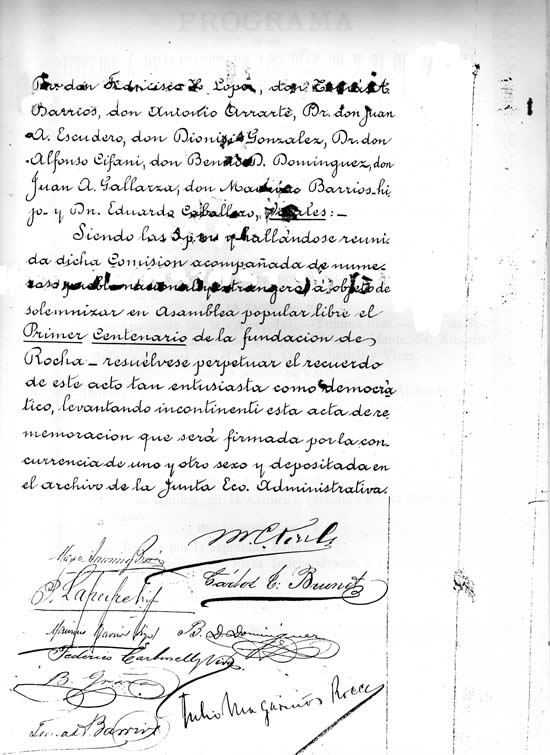 PROGRAMA
don Francisco L. Lopa, don
Barrios, don Antonio Arrarte, Dr. don Juan
A. Escudero, don Dionisio Gonzalez, Dr. don
Alfonso Cifani, don Benito D. Dominguez, don
Juan A. Gallarza, don Mauricio Barrios-hi
jo- y Dn. Eduardo Caballero, Vocales:-
Siendo las 3 p.m. y hallándose reuni
da dicha Comision acompañada de nume
roso pueblo nacional y estrangero, á objeto de
solemnizar en Asamblea popular libre el
Primer Centenario de la fundacion de
Rocha- resuélvese perpetuar el recuerdo
de este acto tan entusiasta como democrá
tico, levantando incontinenti esta acta de re
memoracion que será firmada por la con
currencia de uno y otro sexo y depositada en
el archivo de la Junta Eco. Administrativa.
Cárlos C. Brunet
B. D. Dominguez
Federico Carbonell y Vives
Julio Magariños Rocca
Barrios